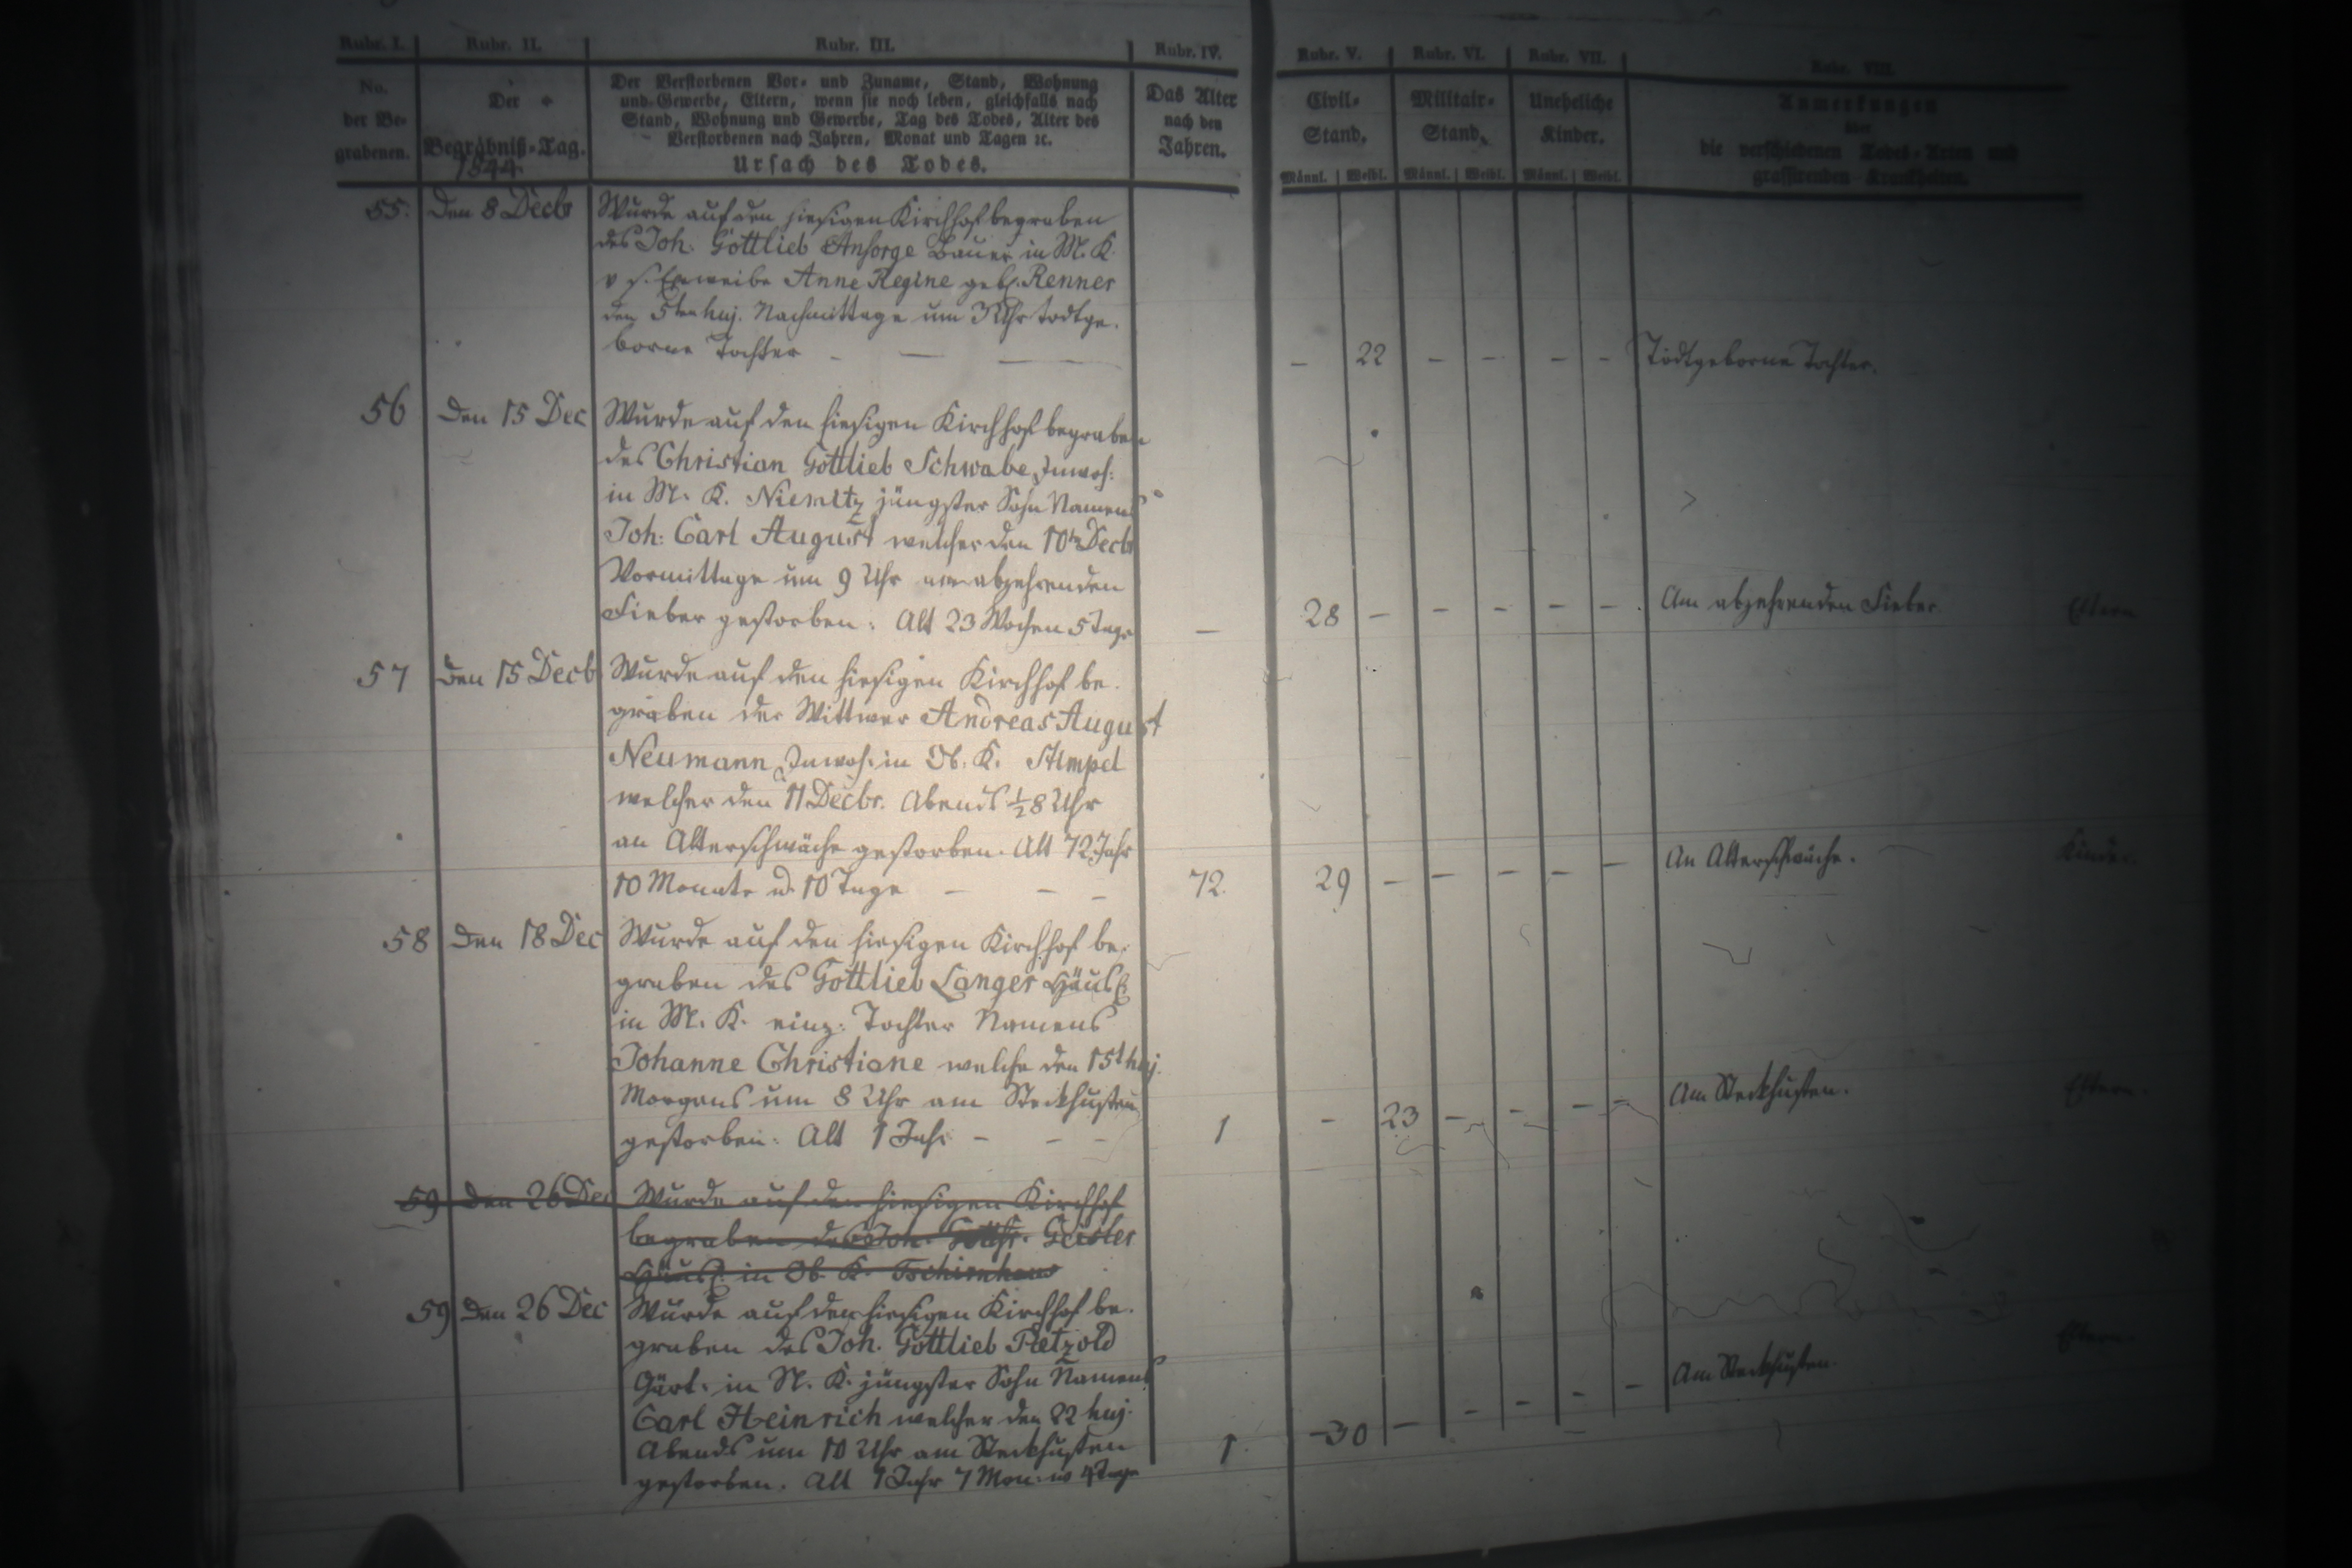 Rubr. I. Rubr. II. Rubr. III. Rubr. IV. Rubr. V. Rubr. VI. Rubr. VII. Rubr. VIII.
No. der Be-grabenen.
Der Begräbniß-Tag.
1844
Der Verstorbenen Vor- und Zuname, Stand, Wohnung
und Gewerbe, Eltern, wenn sie noch leben, gleichfalls nach
Stand, Wohnung und Gewerbe, Tag des Todes, Alter des
Verstorbenen nach Jahren, Monat und Tagen ꝛc.
Ursach des Todes.
Das Alter
nach den
Jahren.
Civil-
Stand.
Militair-
Stand.
Uneheliche
Kinder.
Anmerkungen
über
die verschiedenen Todes-Arten und
grassirenden Krankheiten.
Männl. Weibl. Männl. Weibl. Männl. Weibl.
55. Den 8 Decbr Wurde auf den hiesigen Kirchhof begraben
des Joh. Gottlieb Ansorge Bauer in M. K.
v s. Eheweibe Anne Regine geb. Renner
den 5ten huj. Nachmittage um 3 Uhr todtge-
borne Tochter – — — – 22 – – – – Todtgeborne Tochter.
56 Den 15 Dec Wurde auf den hiesigen Kirchhof begraben
des Christian Gottlieb Schwabe Inwoh:
in M. K. Niemitz jüngster Sohn Namens
Joh: Carl August welcher den 10ten Decbr
Vormittage um 9 Uhr am abzehrenden
Fieber gestorben: Alt 23 Wochen 5 Tage — 28 – – – – – Am abzehrenden Fieber Eltern
57 Den 15 Decb Wurde auf den hiesigen Kirchhof be-
graben der Wittwer Andreas August
Neumann Inwoh. in Ob. K. Stimpel
welcher den 11 Decbr. Abends ½8 Uhr
an Alterschwäche gestorben. Alt 72 Jahr
10 Monate u. 10 Tage – – – 72. 29 – – – – – An Alterschwäche. Kinder
58 Den 18 Dec Wurde auf den hiesigen Kirchhof be-
graben des Gottlieb Langer Häusl.
in M. K. einz: Tochter Namens
Johanne Christiane welche den 15t huj.
Morgens um 8 Uhr am Steckhusten
gestorben: Alt 1 Jahr – – – 1 – 23 – – – – Am Steckhusten. Eltern.
59 Den 26 Dec Wurde auf den hiesigen Kirchhof
begraben des Joh. Gottfr. Geisler
Häusl. in Ob. K. Tschirnhaus
59 Den 26 Dec Wurde auf den hiesigen Kirchhof be-
graben des Joh. Gottlieb Pietzold
Gärt. in N. K. jüngster Sohn Namens
Carl Heinrich welcher den 22 huj.
Abends um 10 Uhr am Steckhusten
gestorben. Alt 1 Jahr 7 Mon: u 4 Tage 1. –30 – – – – – Am Steckhusten. Eltern